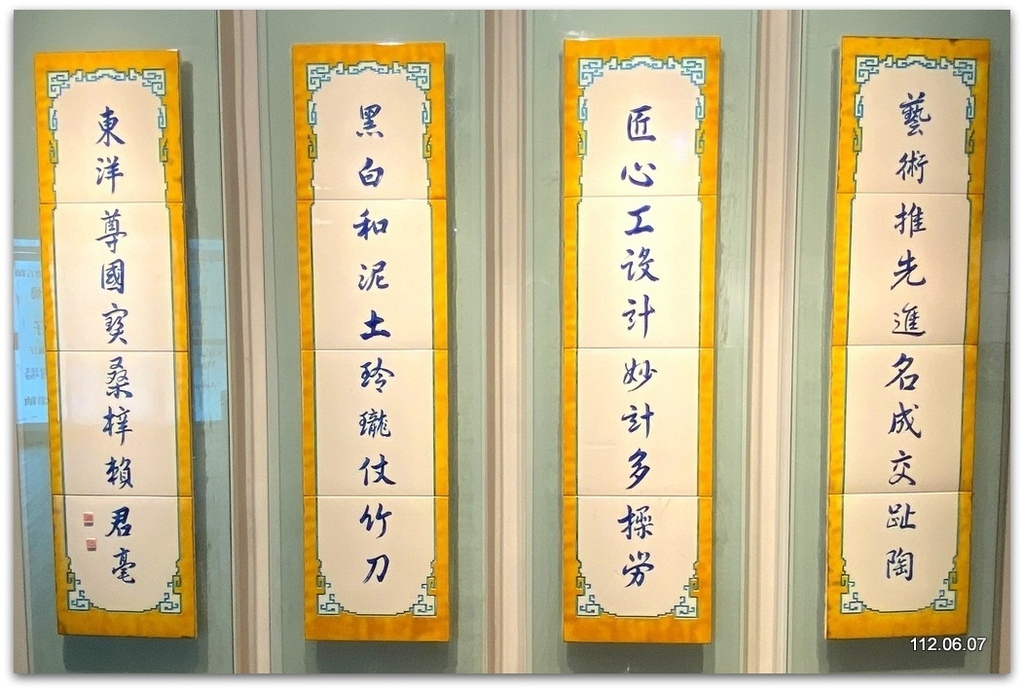 藝術推先進名成交趾陶
匠心工設計妙計多操労
黑白和泥土玲瓏仗竹刀
東洋尊國寶桑梓賴君毫
112.06.07